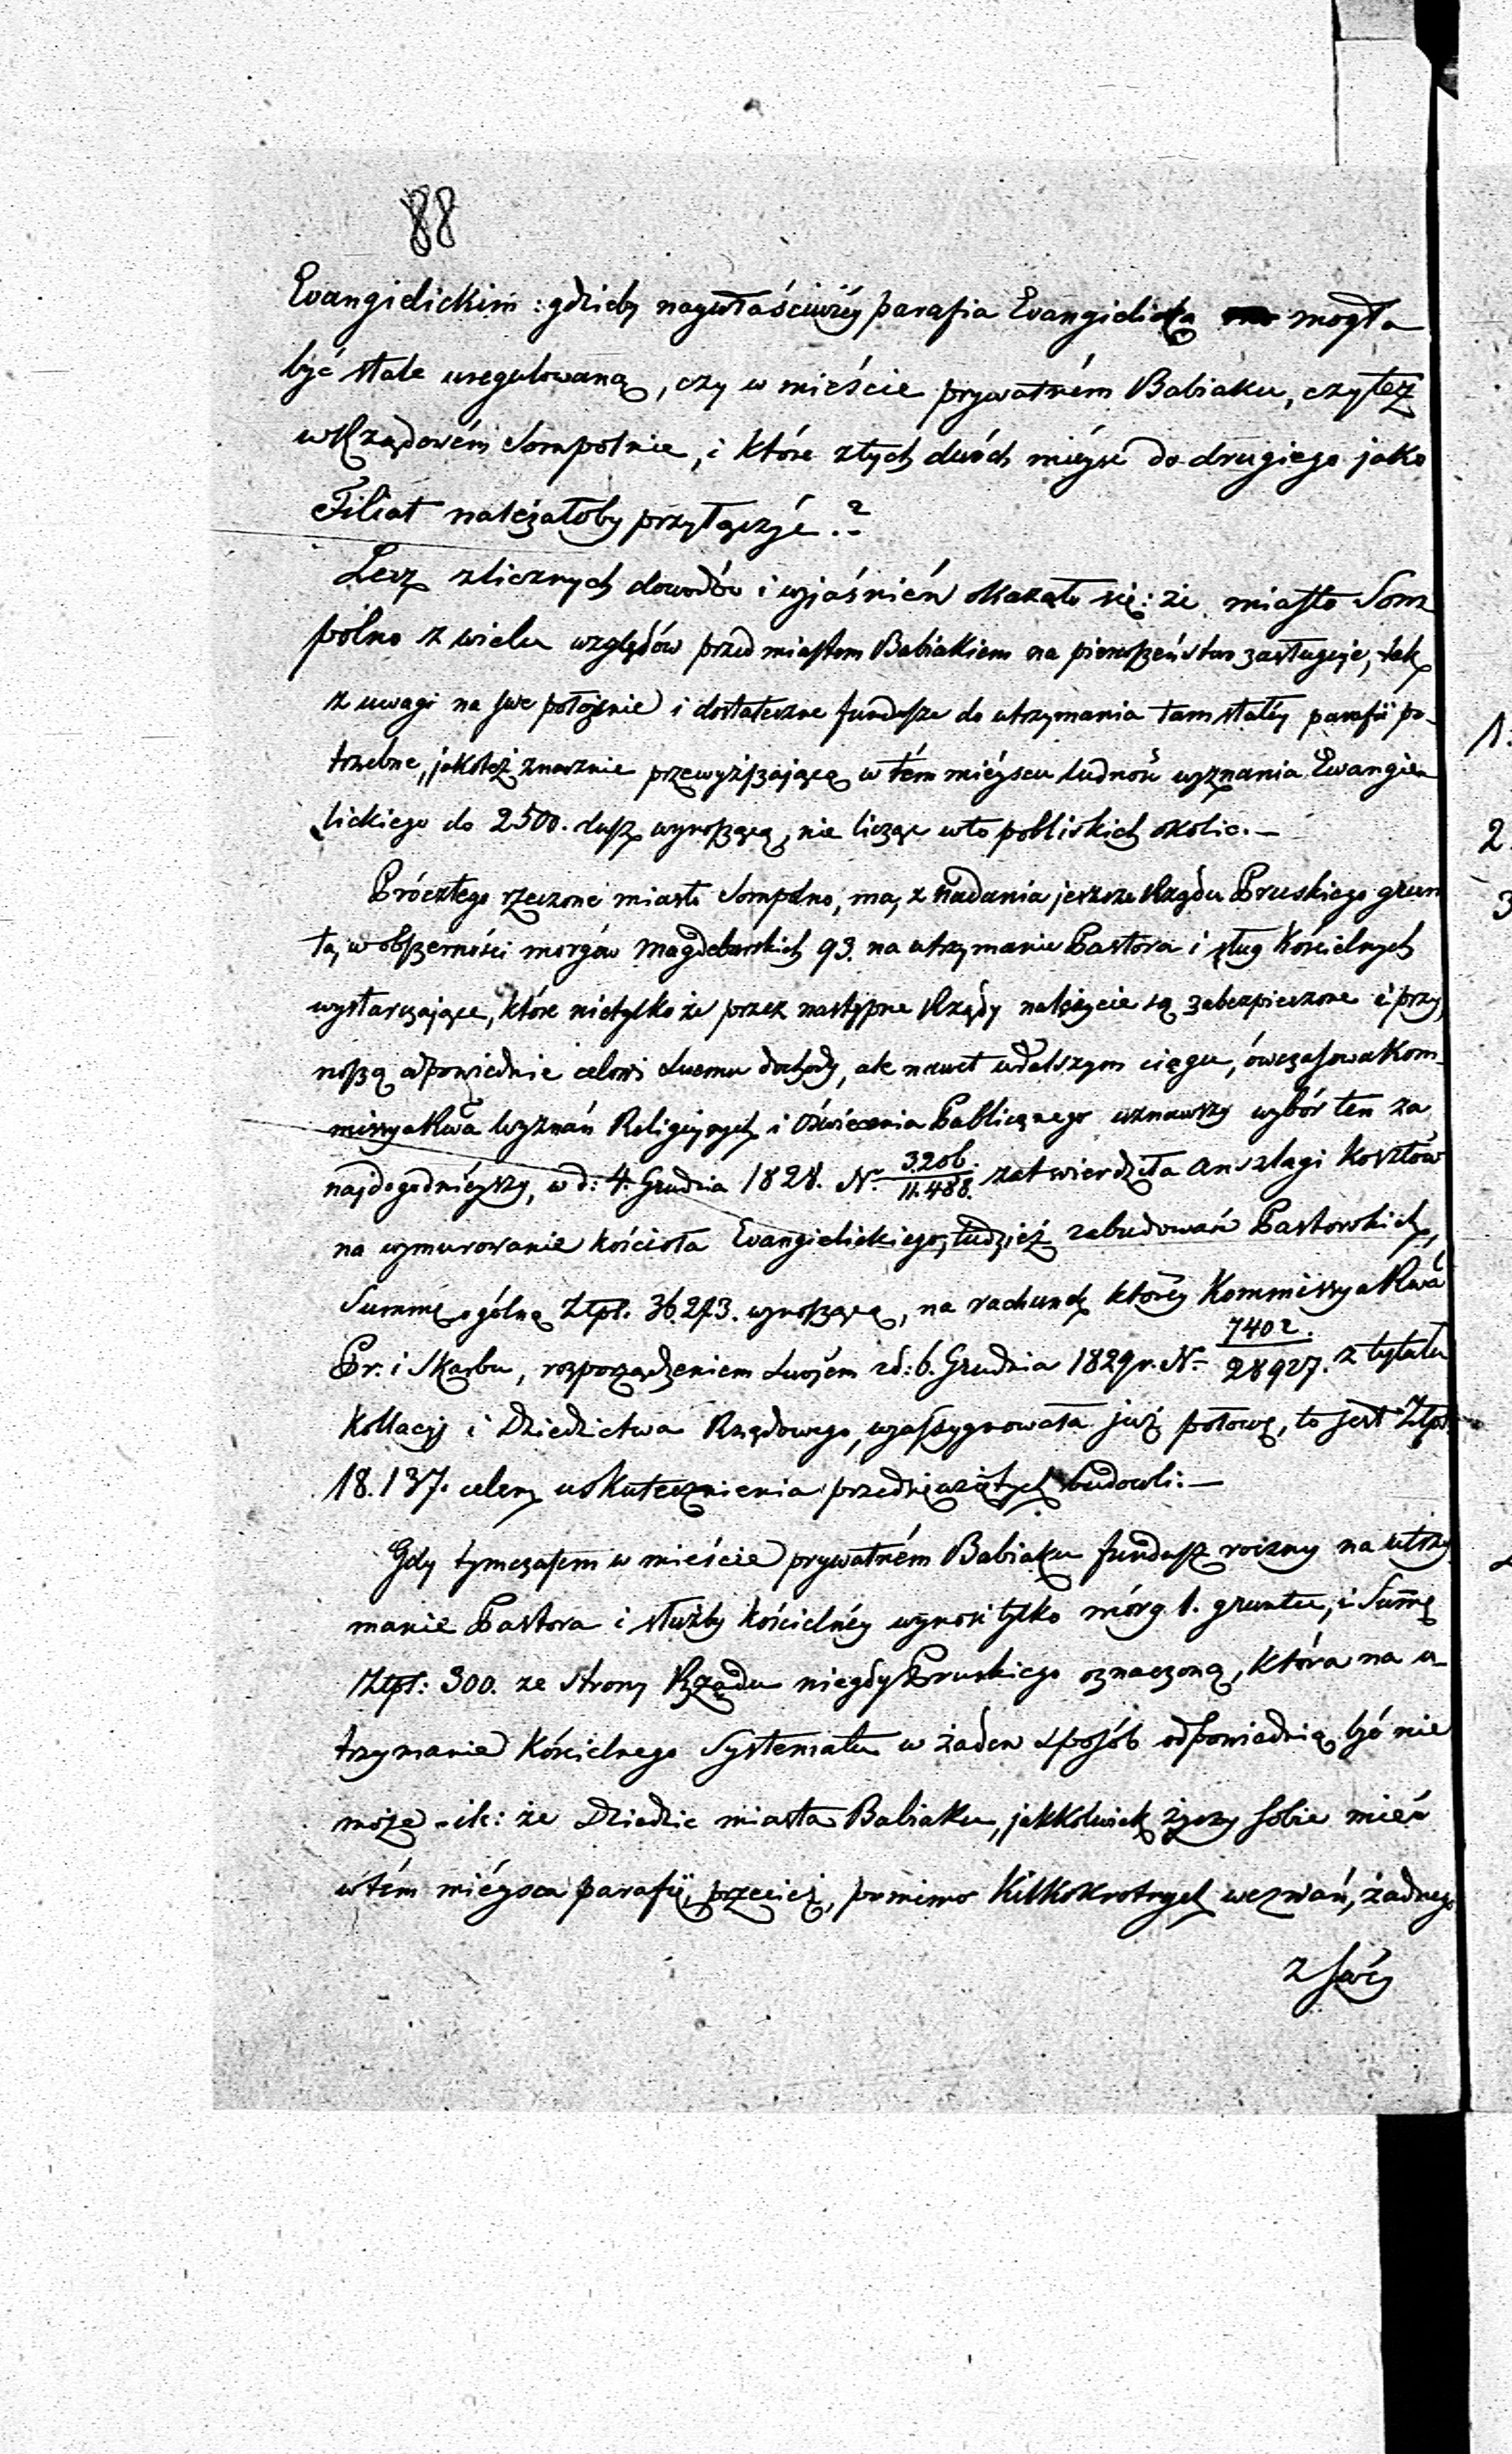 88
Evangielickim: gdzieby naywłaściwiéy parafia Evangielicka mogła
być stale uregulowaną, czy w mieście prywatném Babiaku, czyteż
w Rządowém Sompolnie, i które ztych dwóch miéysc do drugiego jako
Filiał należałoby przyłączyć.?
Lecz zlicznych dowodów i wyjaśnień okazało się: że miasto Som
pólno z wielu względów przed miastem Babiakiem na pierwszeństwo zasługuje, tak
z uwagi na swe położenie i dostateczne fundusze do utrzymania tam stałéy parafii po-
trzebne, jakoteż znacznie przewyższającą w tém miéyscu ludność wyznania Ewangie
lickiego do 2500. dusz wynoszącą, nie licząc wto pobliskich okolic.—
Prócztego rzeczone miasto Sompolno, ma, z nadania jeszcze Rządu Pruskiego grun
ta, w obszerności morgów Magdeburskich 93. na utrzymanie Pastora i sług Kościelnych
wystarczające, które nietylko że przez następne Rządy należycie są zabezpieczone i przy
noszą odpowiednie celowi swemu dochody, ale nawet wdalszym ciągu, ówczasowa Kom-
missya Rwa Wyznań Religijnych i Oświecenia Publicznego uznawszy wybór ten za
najdogodniéyszy, w d: 4. Grudnia 1828. N. 3206./11.488. zatwierdziła anszlagi kosztów
na wymurowanie kościoła Evangielickiego, tudzież zabudowań Pastorskich,
Summę ogólną Złpl. 36.273. wynoszącą, na rachunek któréy Kommissya Rwa
Pr. i Skarbu, rozporządzeniem Swojém zd: 6. Grudnia 1829 r. N- 7402./28927. z tytułu
Kollacyj i Dziedzictwa Rządowego, wyassygnowała już połowę, to jest Złpl.
18.137. celem uskutecznienia przedsięwziętych budowli:—
Gdy tymczasem w mieście prywatném Babiaku fundusz roczny na utrzy
manie Pastora i służby kościelnéy wynosi tylko mórg 1. gruntu, i Sum̄ę
Złpl: 300. ze strony Rządu niegdyś Pruskiego oznaczoną, która na u-
trzymanie Kościelnego Systematu w żaden sposób odpowiednią być nie
może - że Dziedzic miasta Babiaku, jakkolwiek życzy sobie mieć
w tém miéyscu parafią, przecież, pomimo kilkokrotnych wezwań, żadnego
z swéy
1.
2.
3